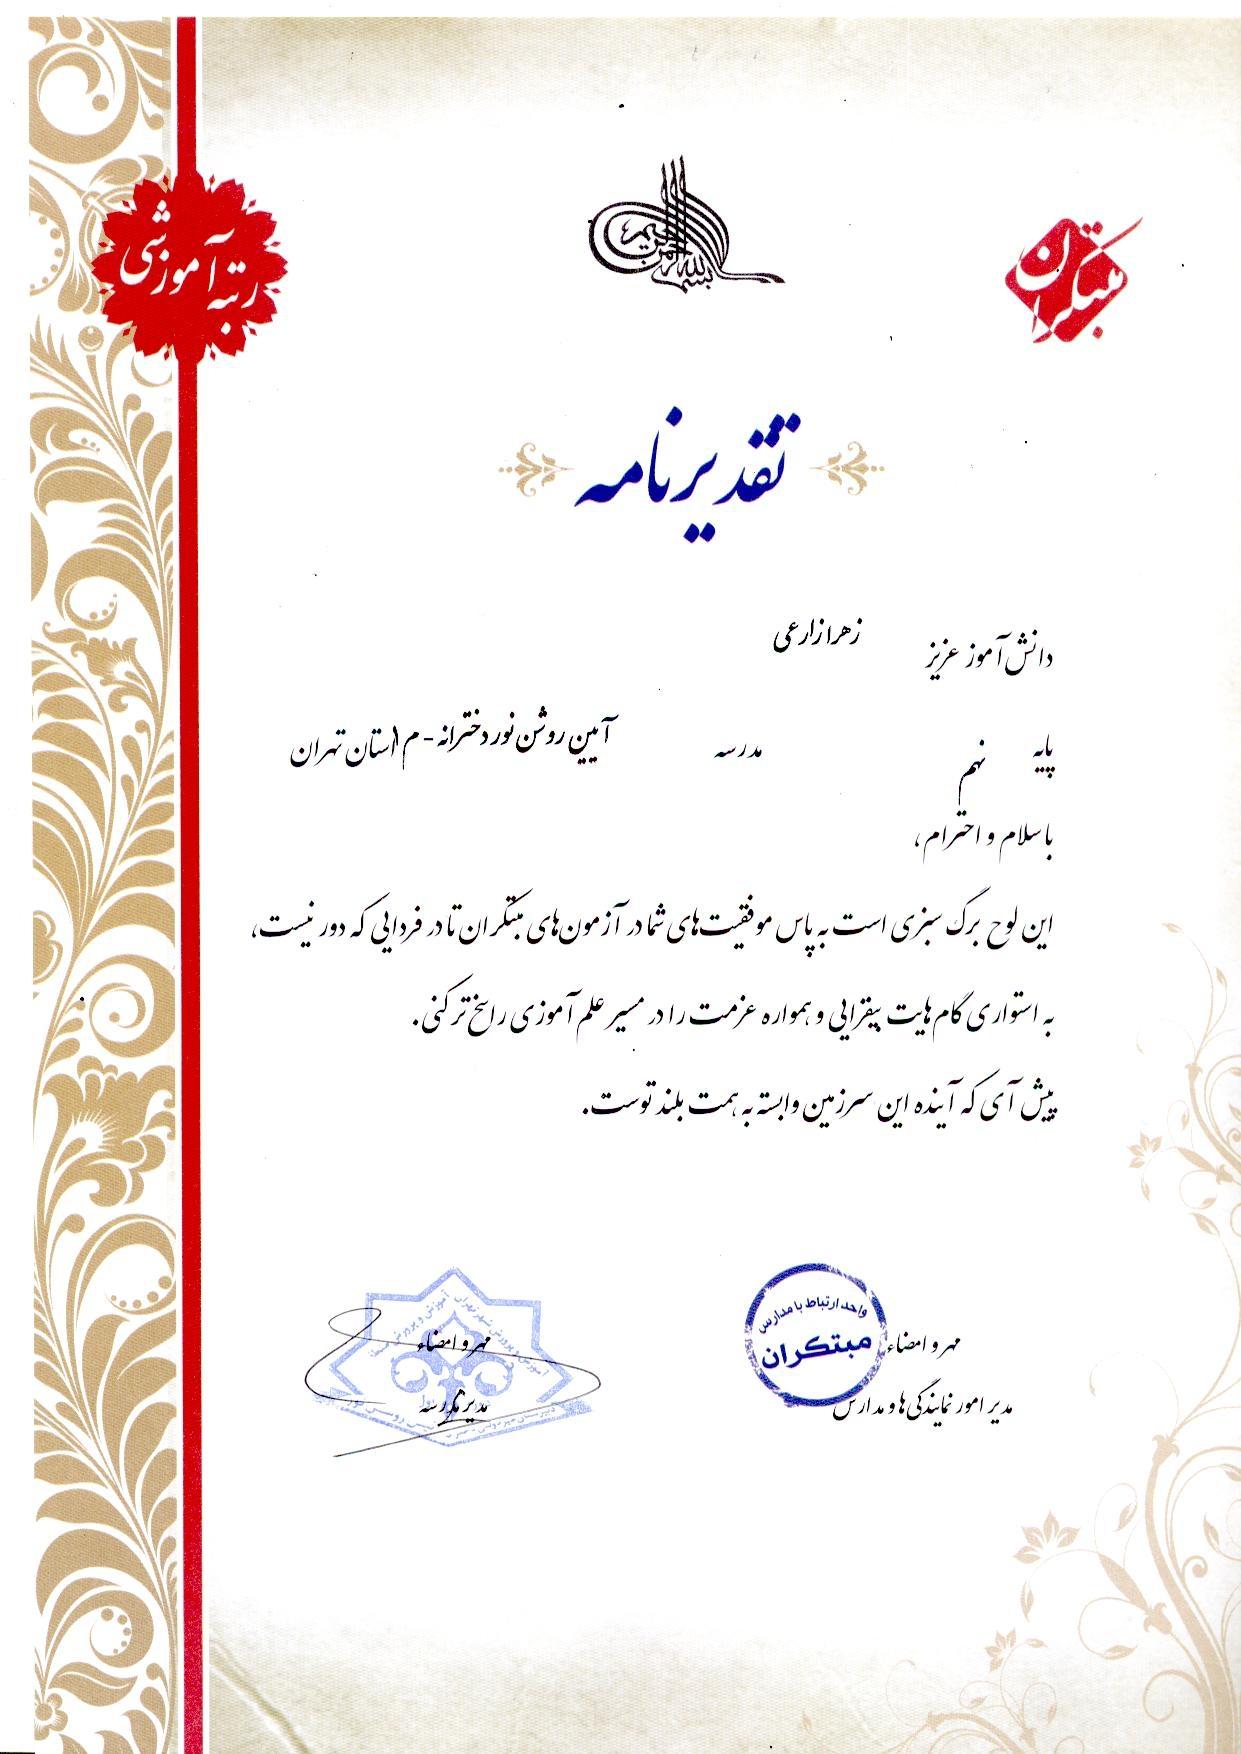 بسم الله الرحمن الرحیم
مبتکران
رتبه آموزشی
تقدیرنامه
دانش‌آموز عزیز زهرا زارعی
پایه نهم مدرسه آیین روشن نور دخترانه - م ۱ استان تهران
با سلام و احترام،
این لوح برگ سبزی است به پاس موفقیت‌های شما در آزمون‌های مبتکران تا در فردایی که دور نیست،
به استواری گام‌هایت بیفزایی و همواره عزمت را در مسیر علم آموزی راسخ‌تر کنی.
پیش آی که آینده این سرزمین وابسته به همت بلند توست.
مهر و امضاء
مدیر امور نمایندگی‌ها و مدارس
واحد ارتباط با مدارس
مبتکران
مهر و امضاء
مدیر مدرسه